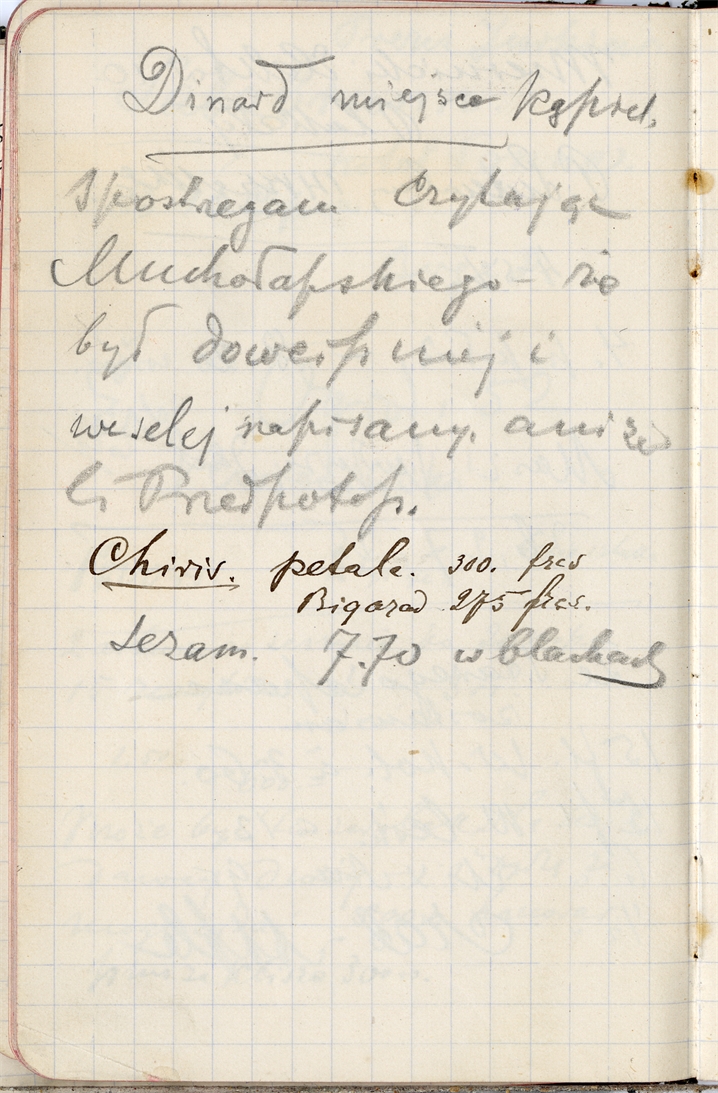 Dinard miejsce kąpiel.
Spostrzegam czytając
Muchołapskiego – że
był dowcipniej i
weselej napisany. aniże
li Przedpotop.
Chiris. petale. 300. frcs
Bigarad 275 frcs.
Sezam. 7.70 w blachach